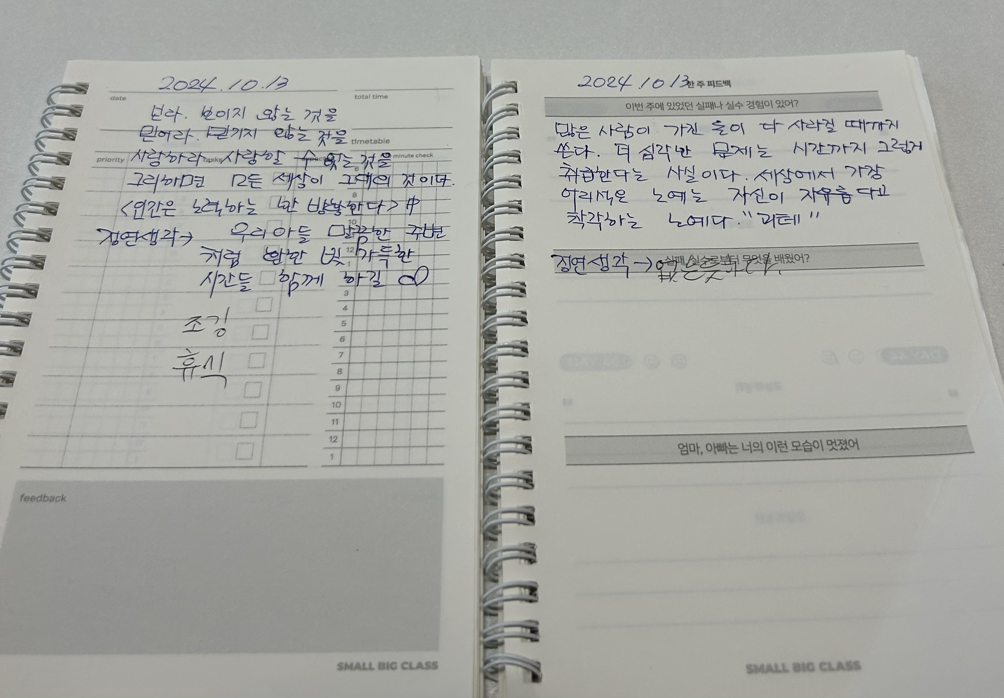 2024.10.13
date
total time
보라. 보이지 않는 것을
믿어라. 믿기지 않는 것을
timetable
priority
tasks
minute check
사랑하라 사랑할 수 없는 것을
그리하면 모든 세상이 그대의 것이다.
<인간은 노력하는 한 방황한다> 中
정연생각→ 우리아들
처럼 환한 빛 가득한
시간들 함께 하길
조깅
휴식
3
4
5
6
7
8
9
10
11
12
1
feedback
SMALL BIG CLASS
2024.10.13
한 주 피드백
이번 주에 있었던 실패나 실수 경험이 있어?
많은 사람이 가진 돈이 다 사라질 때까지
쓴다. 더 심각한 문제는 시간까지 그렇게
취급한다는 사실이다. 세상에서 가장
어리석은 노예는 자신이 자유롭다고
착각하는 노예다. "괴테"
실패, 실수로부터 무엇을 배웠어?
정연생각→
엄마, 아빠는 너의 이런 모습이 멋졌어
SMALL BIG CLASS